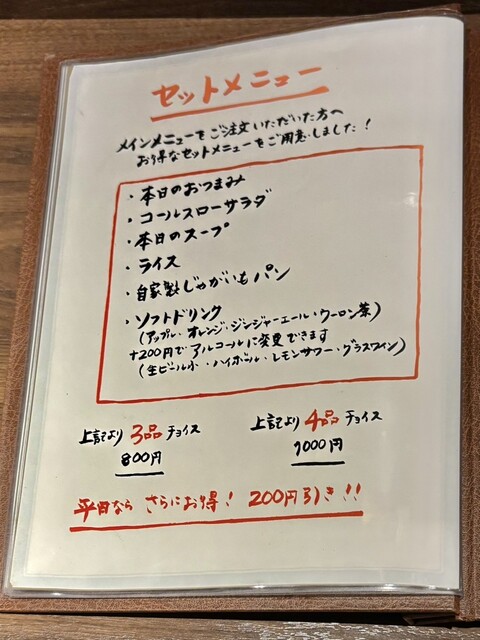 セットメニュー
メインメニューをご注文いただいた方へ
お得なセットメニューをご用意しました！
・本日のおつまみ
・コールスローサラダ
・本日のスープ
・ライス
・自家製じゃがいもパン
・ソフトドリンク
(アップル・オレンジ・ジンジャーエール・ウーロン茶)
+200円でアルコールに変更できます
(生ビール小・ハイボール・レモンサワー・グラスワイン)
上記より3品チョイス
800円
上記より4品チョイス
1000円
平日ならさらにお得！200円引き!!